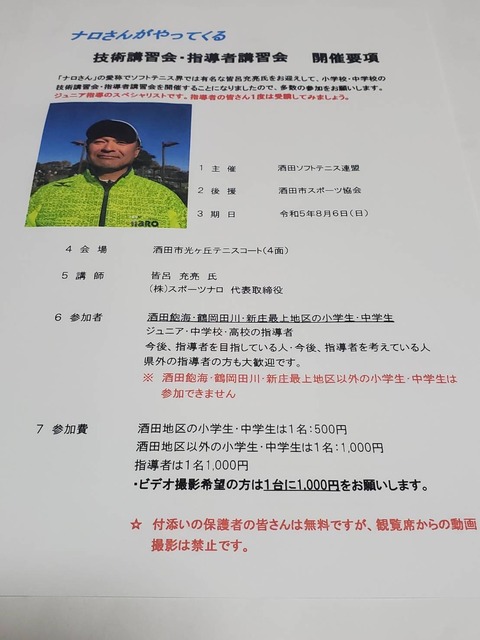 ナロさんがやってくる
技術講習会・指導者講習会　開催要項
「ナロさん」の愛称でソフトテニス界では有名な皆呂充亮氏をお迎えして、小学校・中学校の
技術講習会・指導者講習会を開催することになりましたので、多数の参加をお願いします。
ジュニア指導のスペシャリストです。指導者の皆さん1度は受講してみましょう。
naRO
1 主 催　酒田ソフトテニス連盟
2 後 援　酒田市スポーツ協会
3 期 日　令和5年8月6日(日)
4 会 場　酒田市光ヶ丘テニスコート(4面)
5 講 師　皆呂 充亮 氏
(株)スポーツナロ 代表取締役
6 参加者　酒田飽海・鶴岡田川・新庄最上地区の小学生・中学生
ジュニア・中学校・高校の指導者
今後、指導者を目指している人・今後、指導者を考えている人
県外の指導者の方も大歓迎です。
※ 酒田飽海・鶴岡田川・新庄最上地区以外の小学生・中学生は
参加できません
7 参加費　酒田地区の小学生・中学生は1名:500円
酒田地区以外の小学生・中学生は1名:1,000円
指導者は1名1,000円
・ビデオ撮影希望の方は1台に1,000円をお願いします。
☆ 付添いの保護者の皆さんは無料ですが、観覧席からの動画
撮影は禁止です。